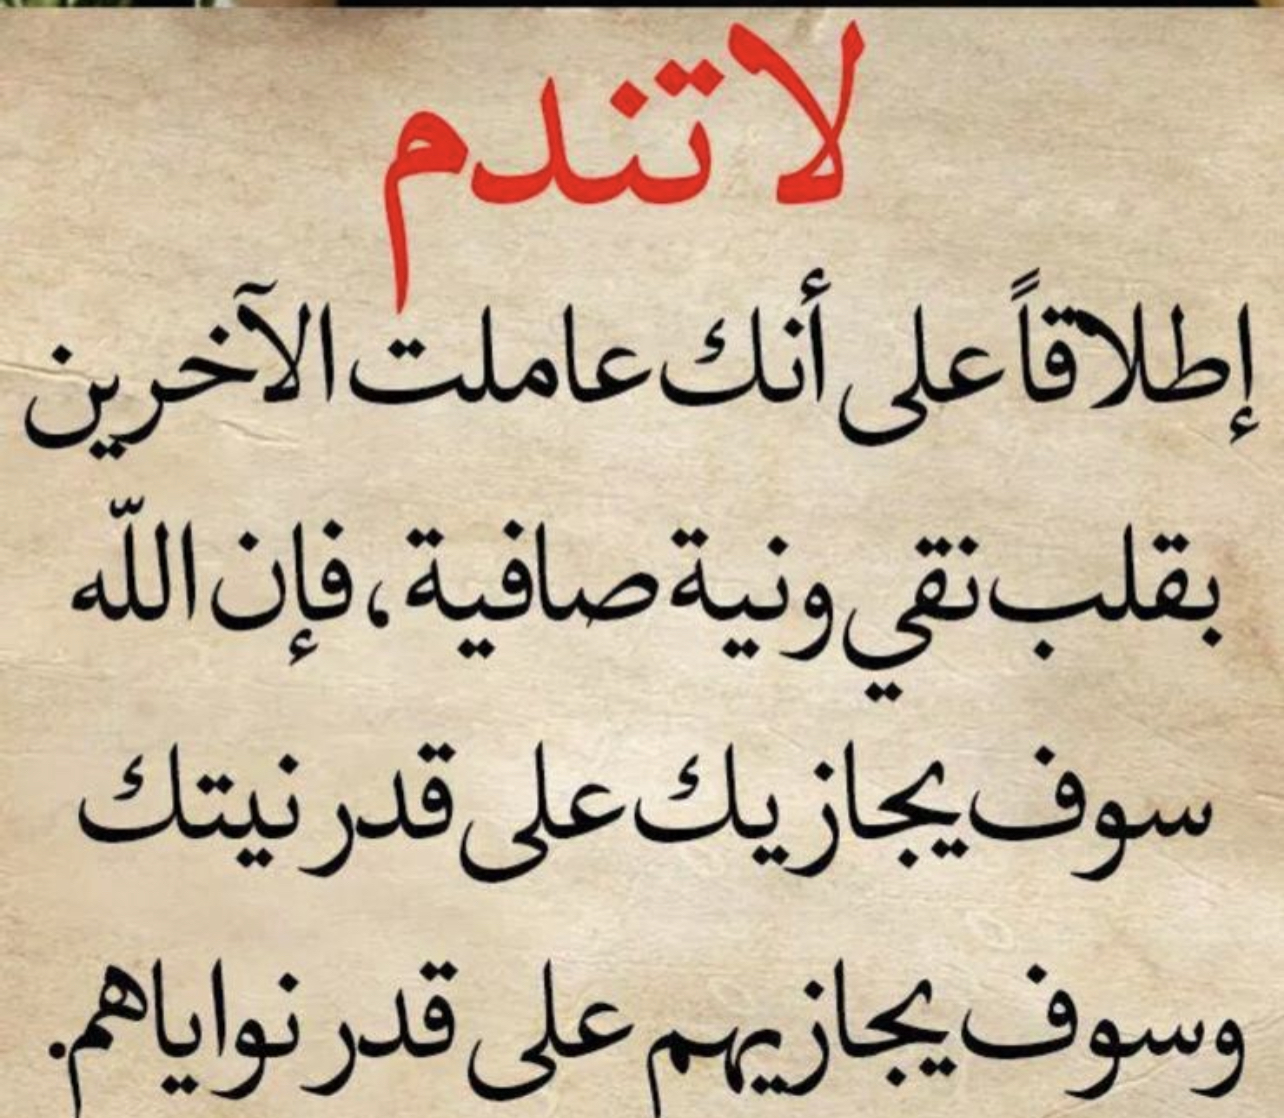 لا تندم
إطلاقاً على أنك عاملت الآخرين
بقلب نقي ونية صافية، فإن اللّه
سوف يجازيك على قدر نيتك
وسوف يجازيهم على قدر نواياهم.